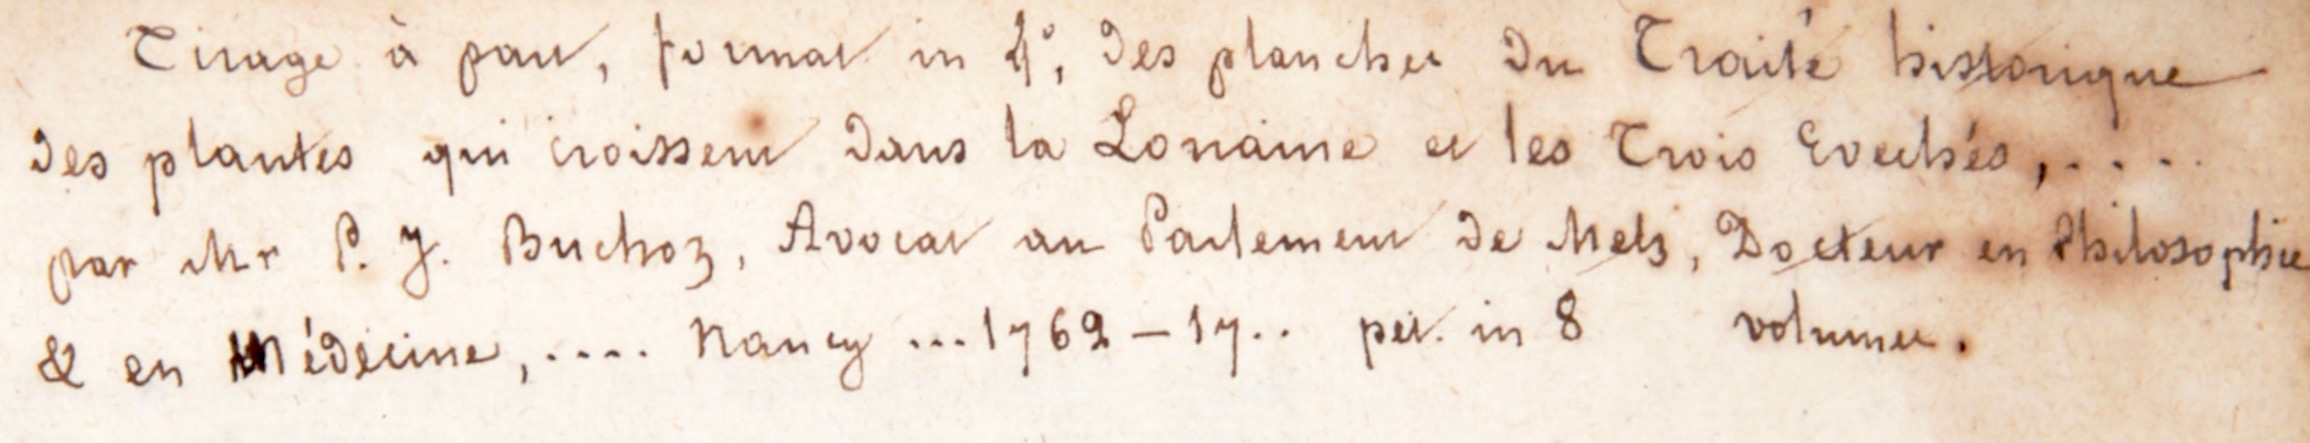 Tirage à part, format in 4°, des planches du Traité historique
des plantes qui croissent dans la Lorraine et les Trois Evechés,....
par Mr P. J. Buchoz, Avocat au Parlement de Metz, Docteur en Philosophie
& en Médecine,.... Nancy ...1762-17.. pet. in 8 volumes.